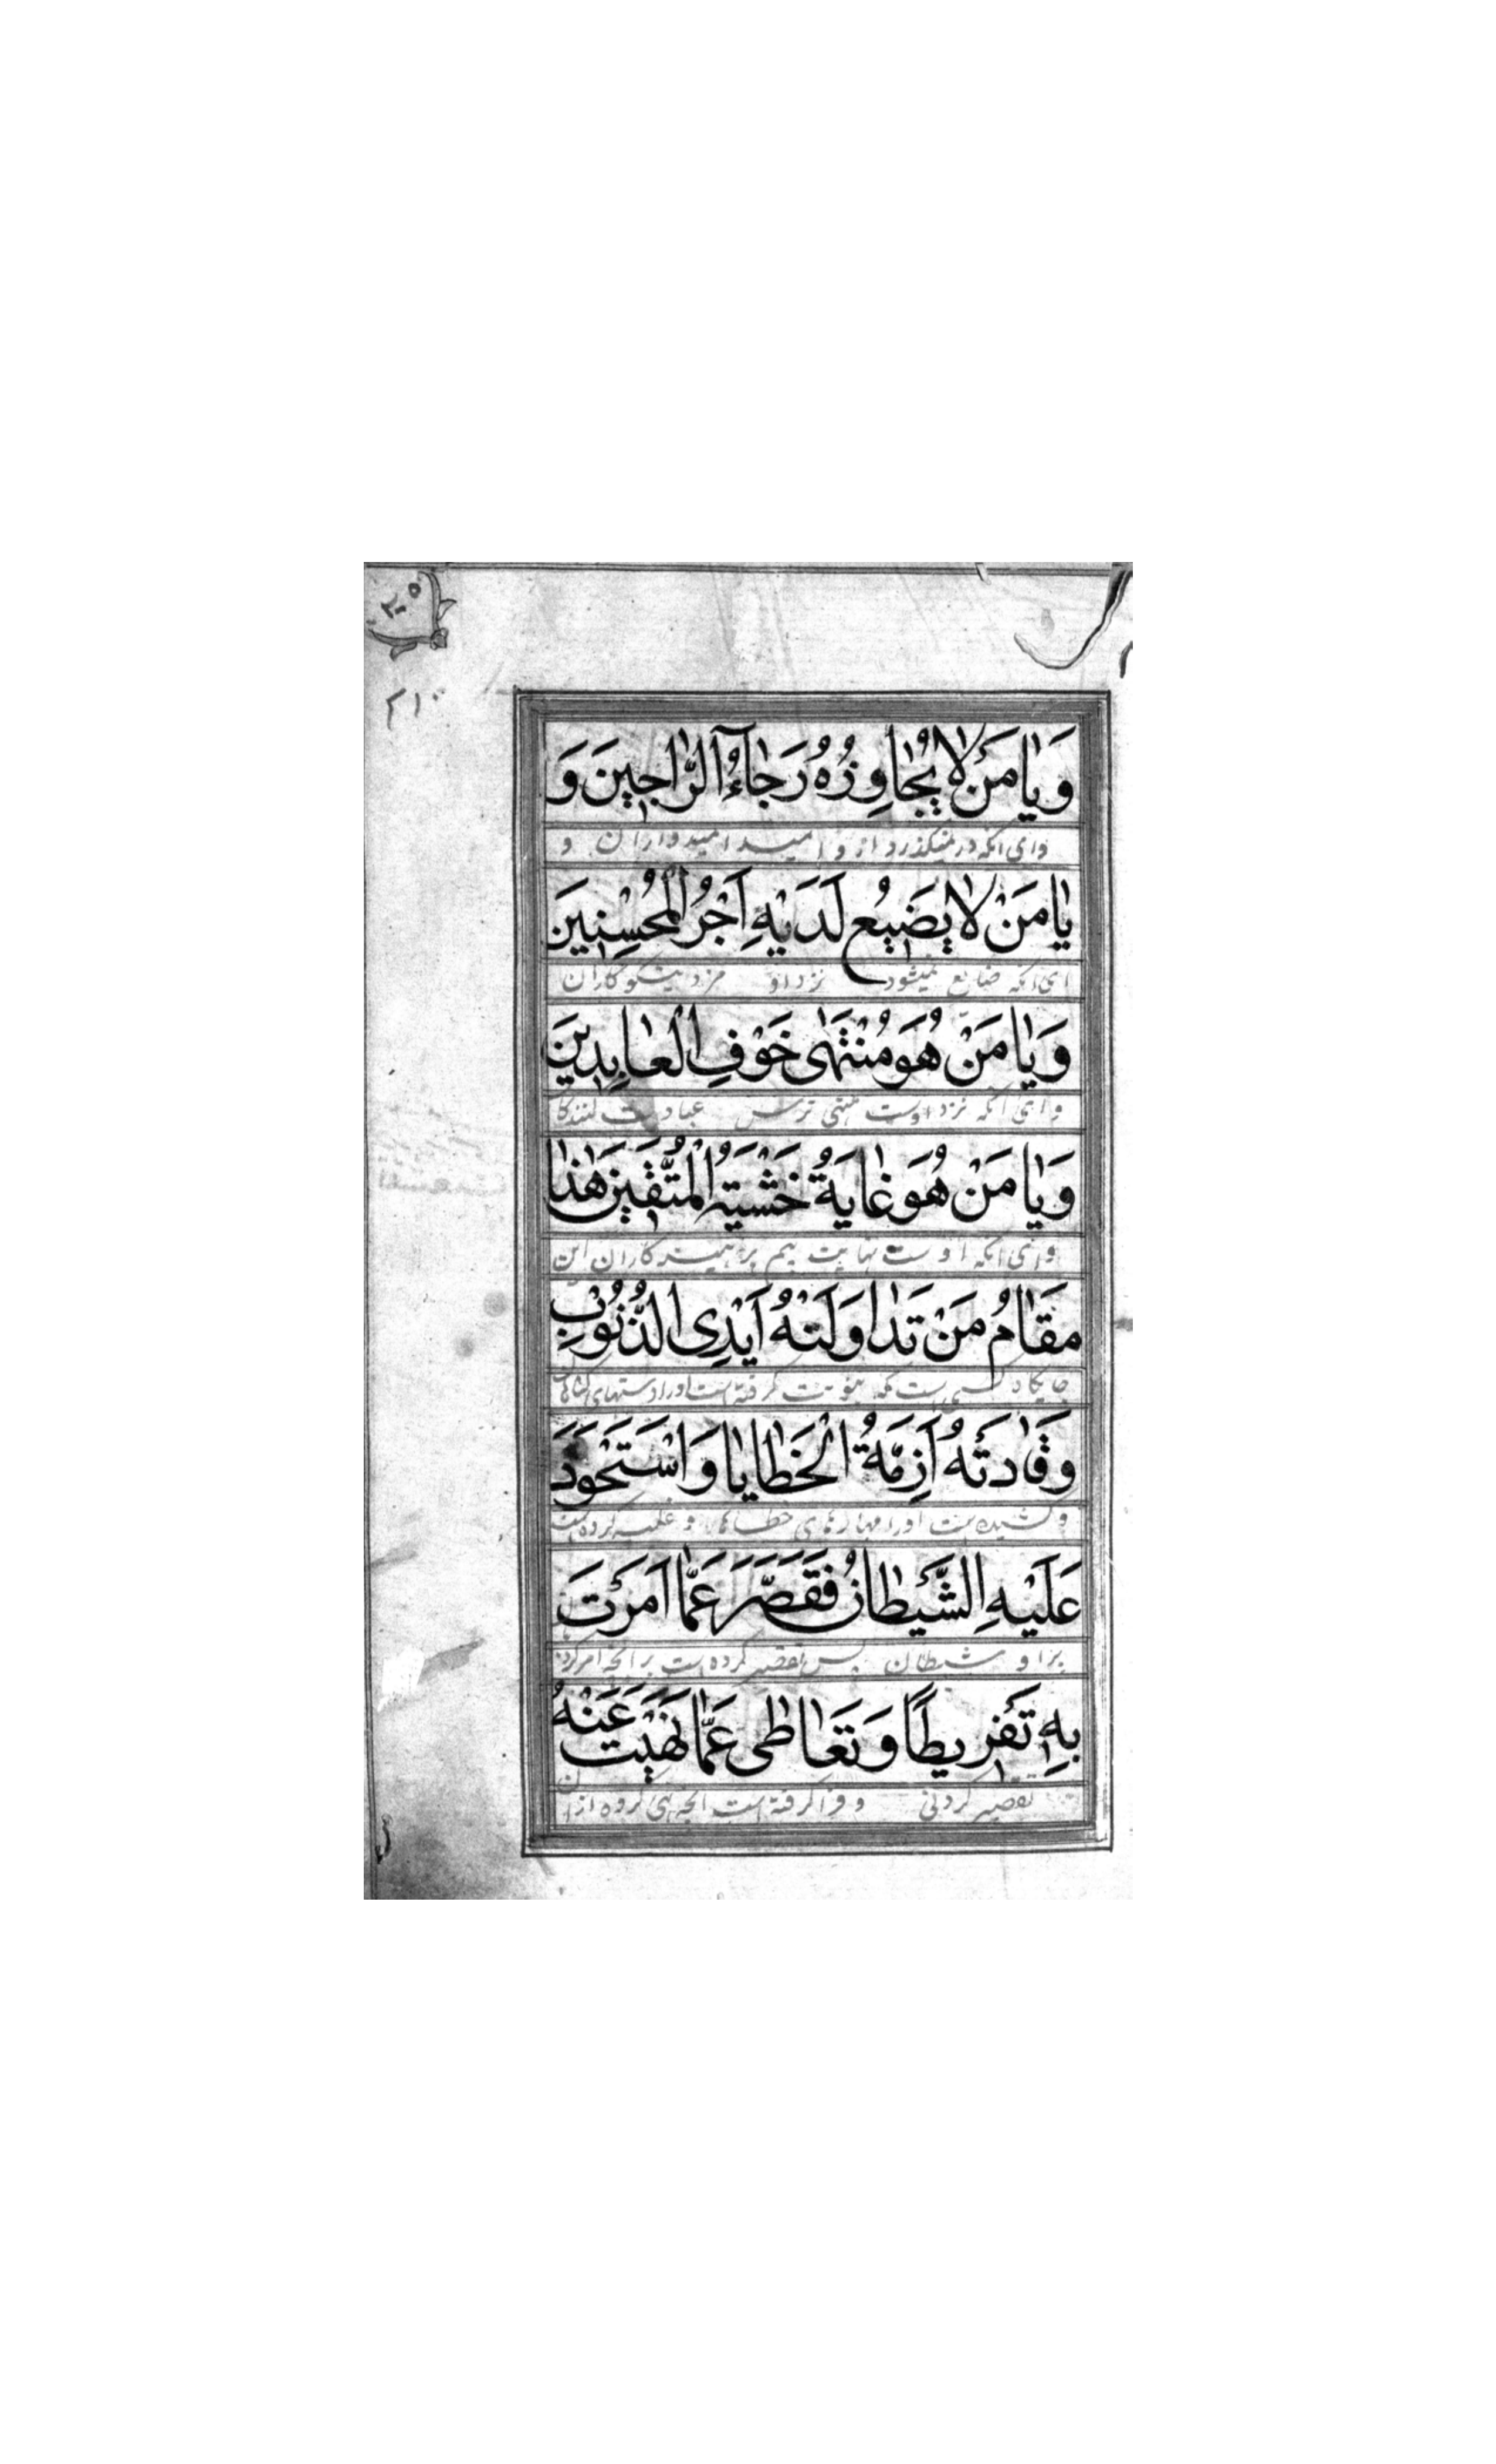 ۳۰۵
۲۱۰
وَيَا مَنْ لَا يُجَاوِزُهُ رَجَاءُ الرَّاجِينَ وَ
وای آنکه در نمیگذرد از و امید امیدواران و
يَا مَنْ لَا يَضِيعُ لَدَيْهِ اَجْرُ الْمُحْسِنِينَ
ای آنکه ضایع نمیشود نزد او مزد نیکوکاران
وَيَا مَنْ هُوَ مُنْتَهَى خَوْفِ الْعَابِدِينَ
وای آنکه نزد اوست منتهی ترس عبادت کنندکان
وَيَا مَنْ هُوَ غَايَةُ خَشْيَةِ الْمُتَّقِينَ هَذَا
وای آنکه اوست نهایت بیم پرهیزکاران این
مَقَامُ مَنْ تَدَاوَلَتْهُ اَيْدِى الذُّنُوبِ
جایکاه کسی است که بنوبت کرفته است اورا دستهای کناهان
وَقَادَتْهُ اَزِمَّةُ الْخَطَايَا وَاسْتَحْوَذَ
و کشیده است اورا مهارهای خطاها و غلبه کرده است
عَلَيْهِ الشَّيْطَانُ فَقَصَّرَ عَمَّا اَمَرْتَ
براو شیطان پس تقصیر کرده است برآنچه امر کرده
بِهِ تَفْرِيطًا وَتَعَاطَى عَمَّا نَهَيْتَ عَنْهُ
تقصیر کردنی و فرا کرفته است آنچه نهی کرده از آن